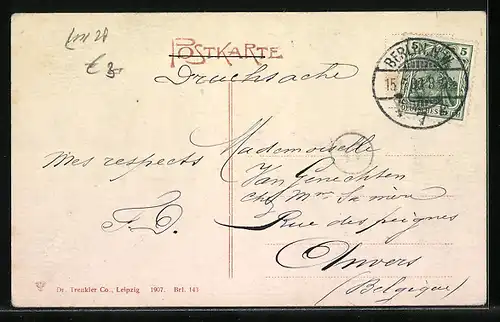 POSTKARTE
Drucksache
BERLIN
5
Mes respects
F.D.
Mademoiselle
Van Genechten
chez Mme
Rue des peignes
Anvers
(Belgique)
Dr. Trenkler Co., Leipzig 1907. Brl. 143